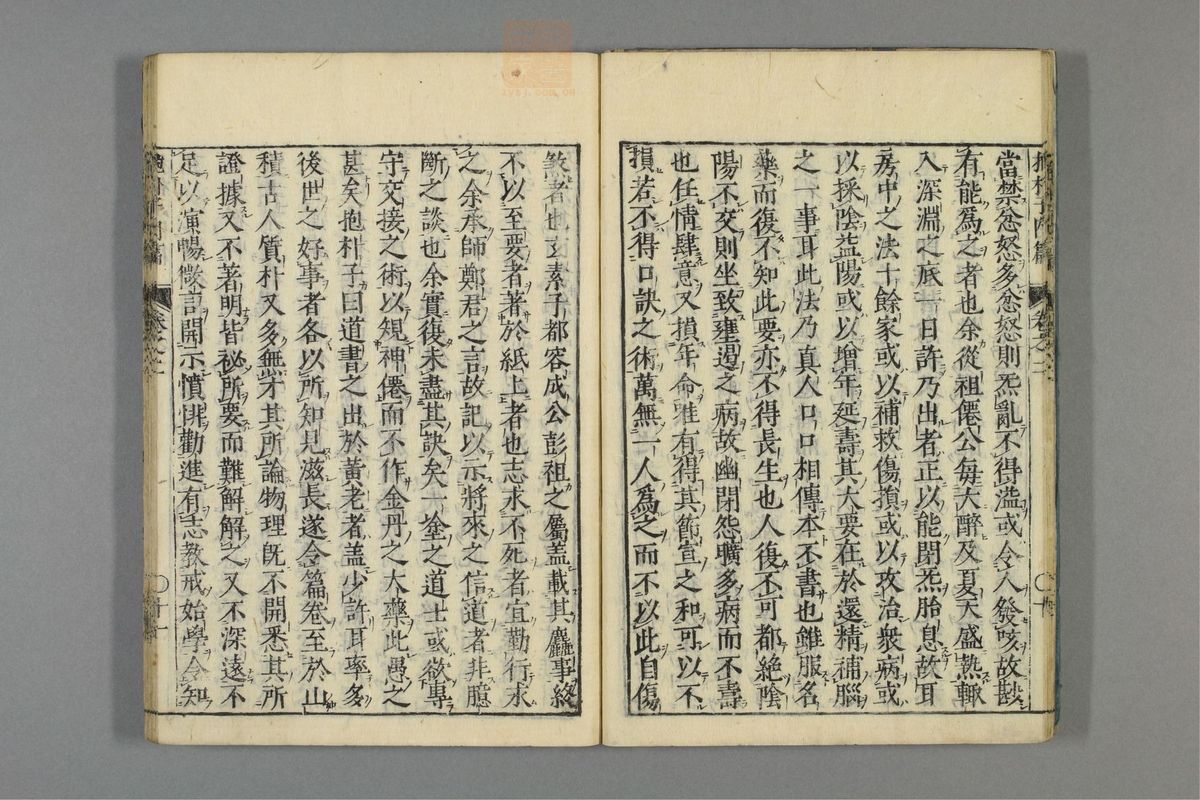 當禁忿怒多忿怒則炁亂不得溢或令人發咳故尠
有能為之者也余從祖僊公每大醉及夏天盛熱輙
入深淵之底一日許乃出者正以能閉炁胎息故耳
房中之法十餘家或以補救傷損或以攻治衆病或
以採陰益陽或以增年延壽其大要在於還精補腦
之一事耳此法乃真人口口相傳本不書也雖服名
藥而復不知此要亦不得長生也人復不可都絶陰
陽不交則坐致壅遏之病故幽閉怨曠多病而不壽
也任情肆意又損年命唯有得其節宣之和可以不
損若不得口訣之術萬無一人為之而不以此自傷
煞者也玄素子都容成公彭祖之屬盖載其麤事終
不以至要者著於紙上者也志求不死者宜勤行求
之余承師鄭君之言故記以示將來之信道者非臆
斷之談也余實復未盡其訣矣一塗之道士或欲專
守交接之術以規神僊而不作金丹之大藥此愚之
甚矣抱朴子曰道書之出於黄老者盖少許耳率多
後世之好事者各以所知見滋長遂令篇卷至於山
積古人質朴又多無才其所論物理既不開悉其所
證據又不著明皆祕所要而難解解之又不深遠不
足以演暢微言開示憤悱勸進有志教戒始學令知